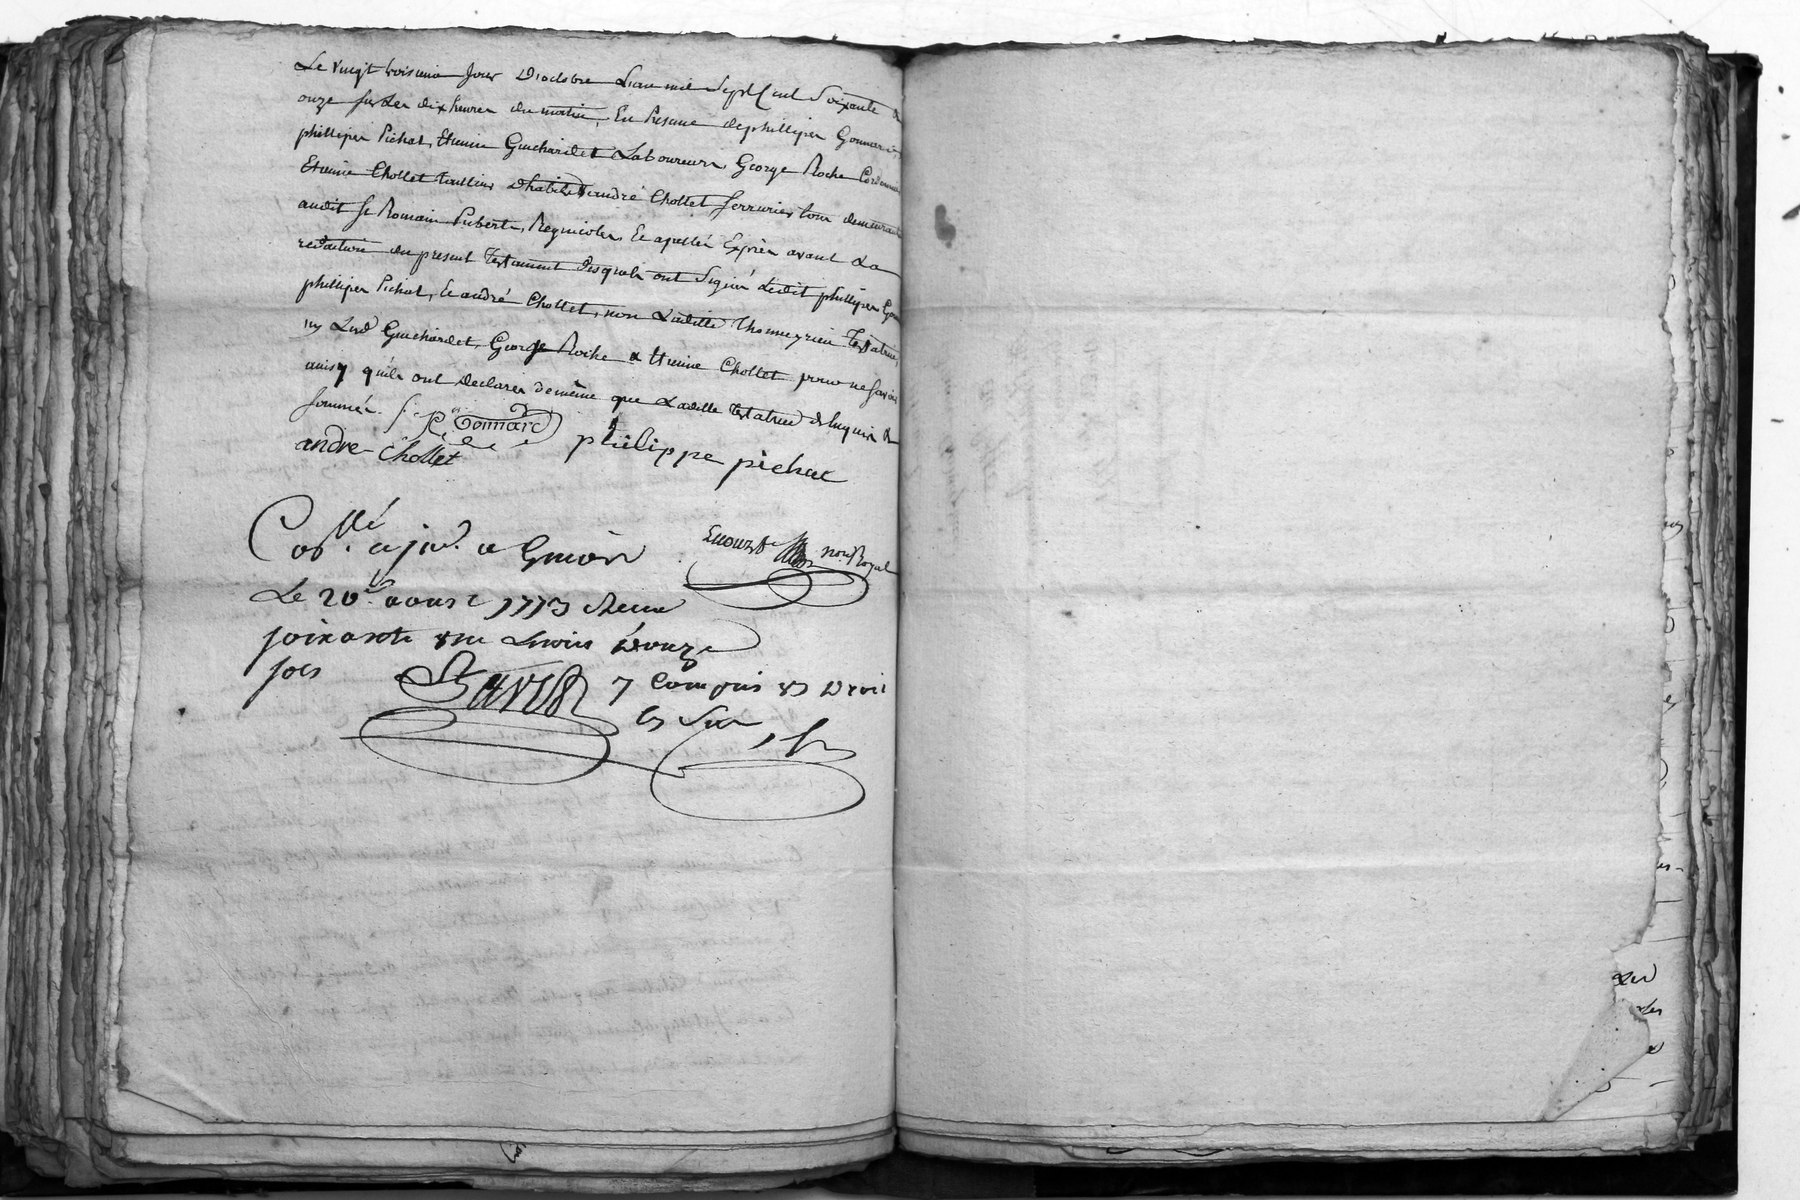 Le vingt troisieme Jour D'octobre L'an mil Sept Cent Soixante &
onze sur Les dix heures du matin, En Presence de phillipes Gonnard,
phillipes Pichat, Etienne Guichardet Laboureurs, George Roche Cordonnier
Etienne Chollet tailleur D'habits & andré Chollet serrurier tous demeurants
audit St Romain Puberts, Regnicoles, Et apellés Exprès avant La
redaction du present Testament desquels ont Signé Ledit phillipes Gon
phillipes Pichat, Et andré Chollet, non Laditte Thomeyrieu Testatrice,
ny Lesd Guichardet, George Roche & Etienne Chollet pour ne savoir
ainsy qu'ils ont declarer de même que Laditte Testatrice de ce requis &
sommés.
Gonnard
andre Chollet philippe pichat
Con.lé a Givors
Royal
Le 20 aoust 1773 Receu
soixante un Livres douze
sols
y Compris